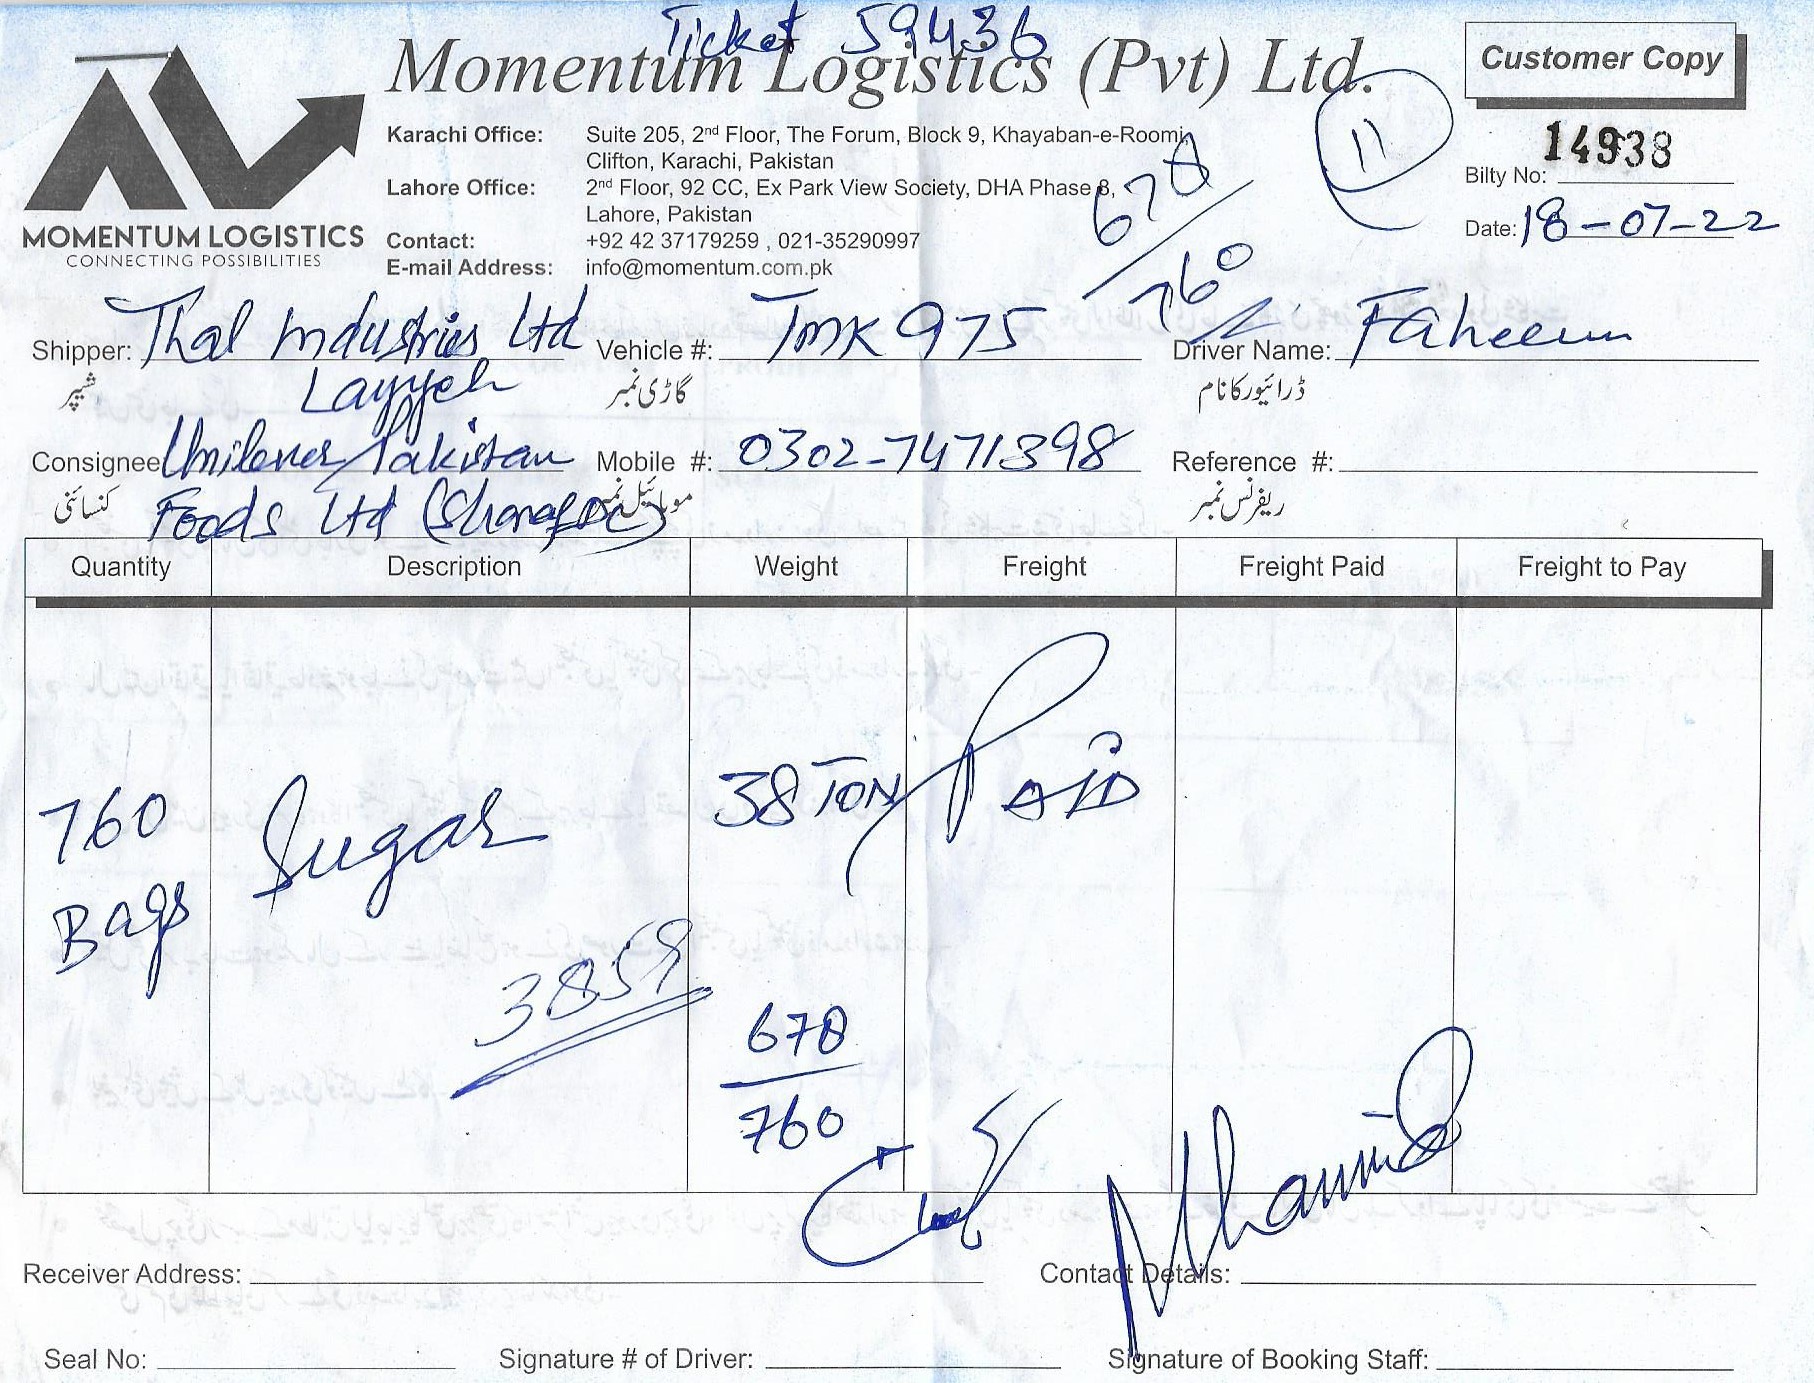 Ticket 59436
Momentum Logistics (Pvt) Ltd.
Customer Copy
MOMENTUM LOGISTICS
CONNECTING POSSIBILITIES
Karachi Office: Suite 205, 2nd Floor, The Forum, Block 9, Khayaban-e-Roomi,
Clifton, Karachi, Pakistan
Lahore Office: 2nd Floor, 92 CC, Ex Park View Society, DHA Phase 8,
Lahore, Pakistan
Contact: +92 42 37179259 , 021-35290997
E-mail Address: info@momentum.com.pk
670
760
11
Bilty No: 14938
Date: 18-07-22
Shipper: Thal Industries Ltd Vehicle #: TMK 975 Driver Name: Faheem
شیپر Layyah گاڑی نمبر ڈرائیور کا نام
Consignee Unilever Pakistan Mobile #: 0302-7471398 Reference #:
کنسائنی Foods Ltd موبائیل نمبر ریفرنس نمبر
Quantity Description Weight Freight Freight Paid Freight to Pay
760 Sugar 38 TON PAID
Bags
3859
670
760
Receiver Address: Contact Details:
Seal No: Signature # of Driver: Signature of Booking Staff: